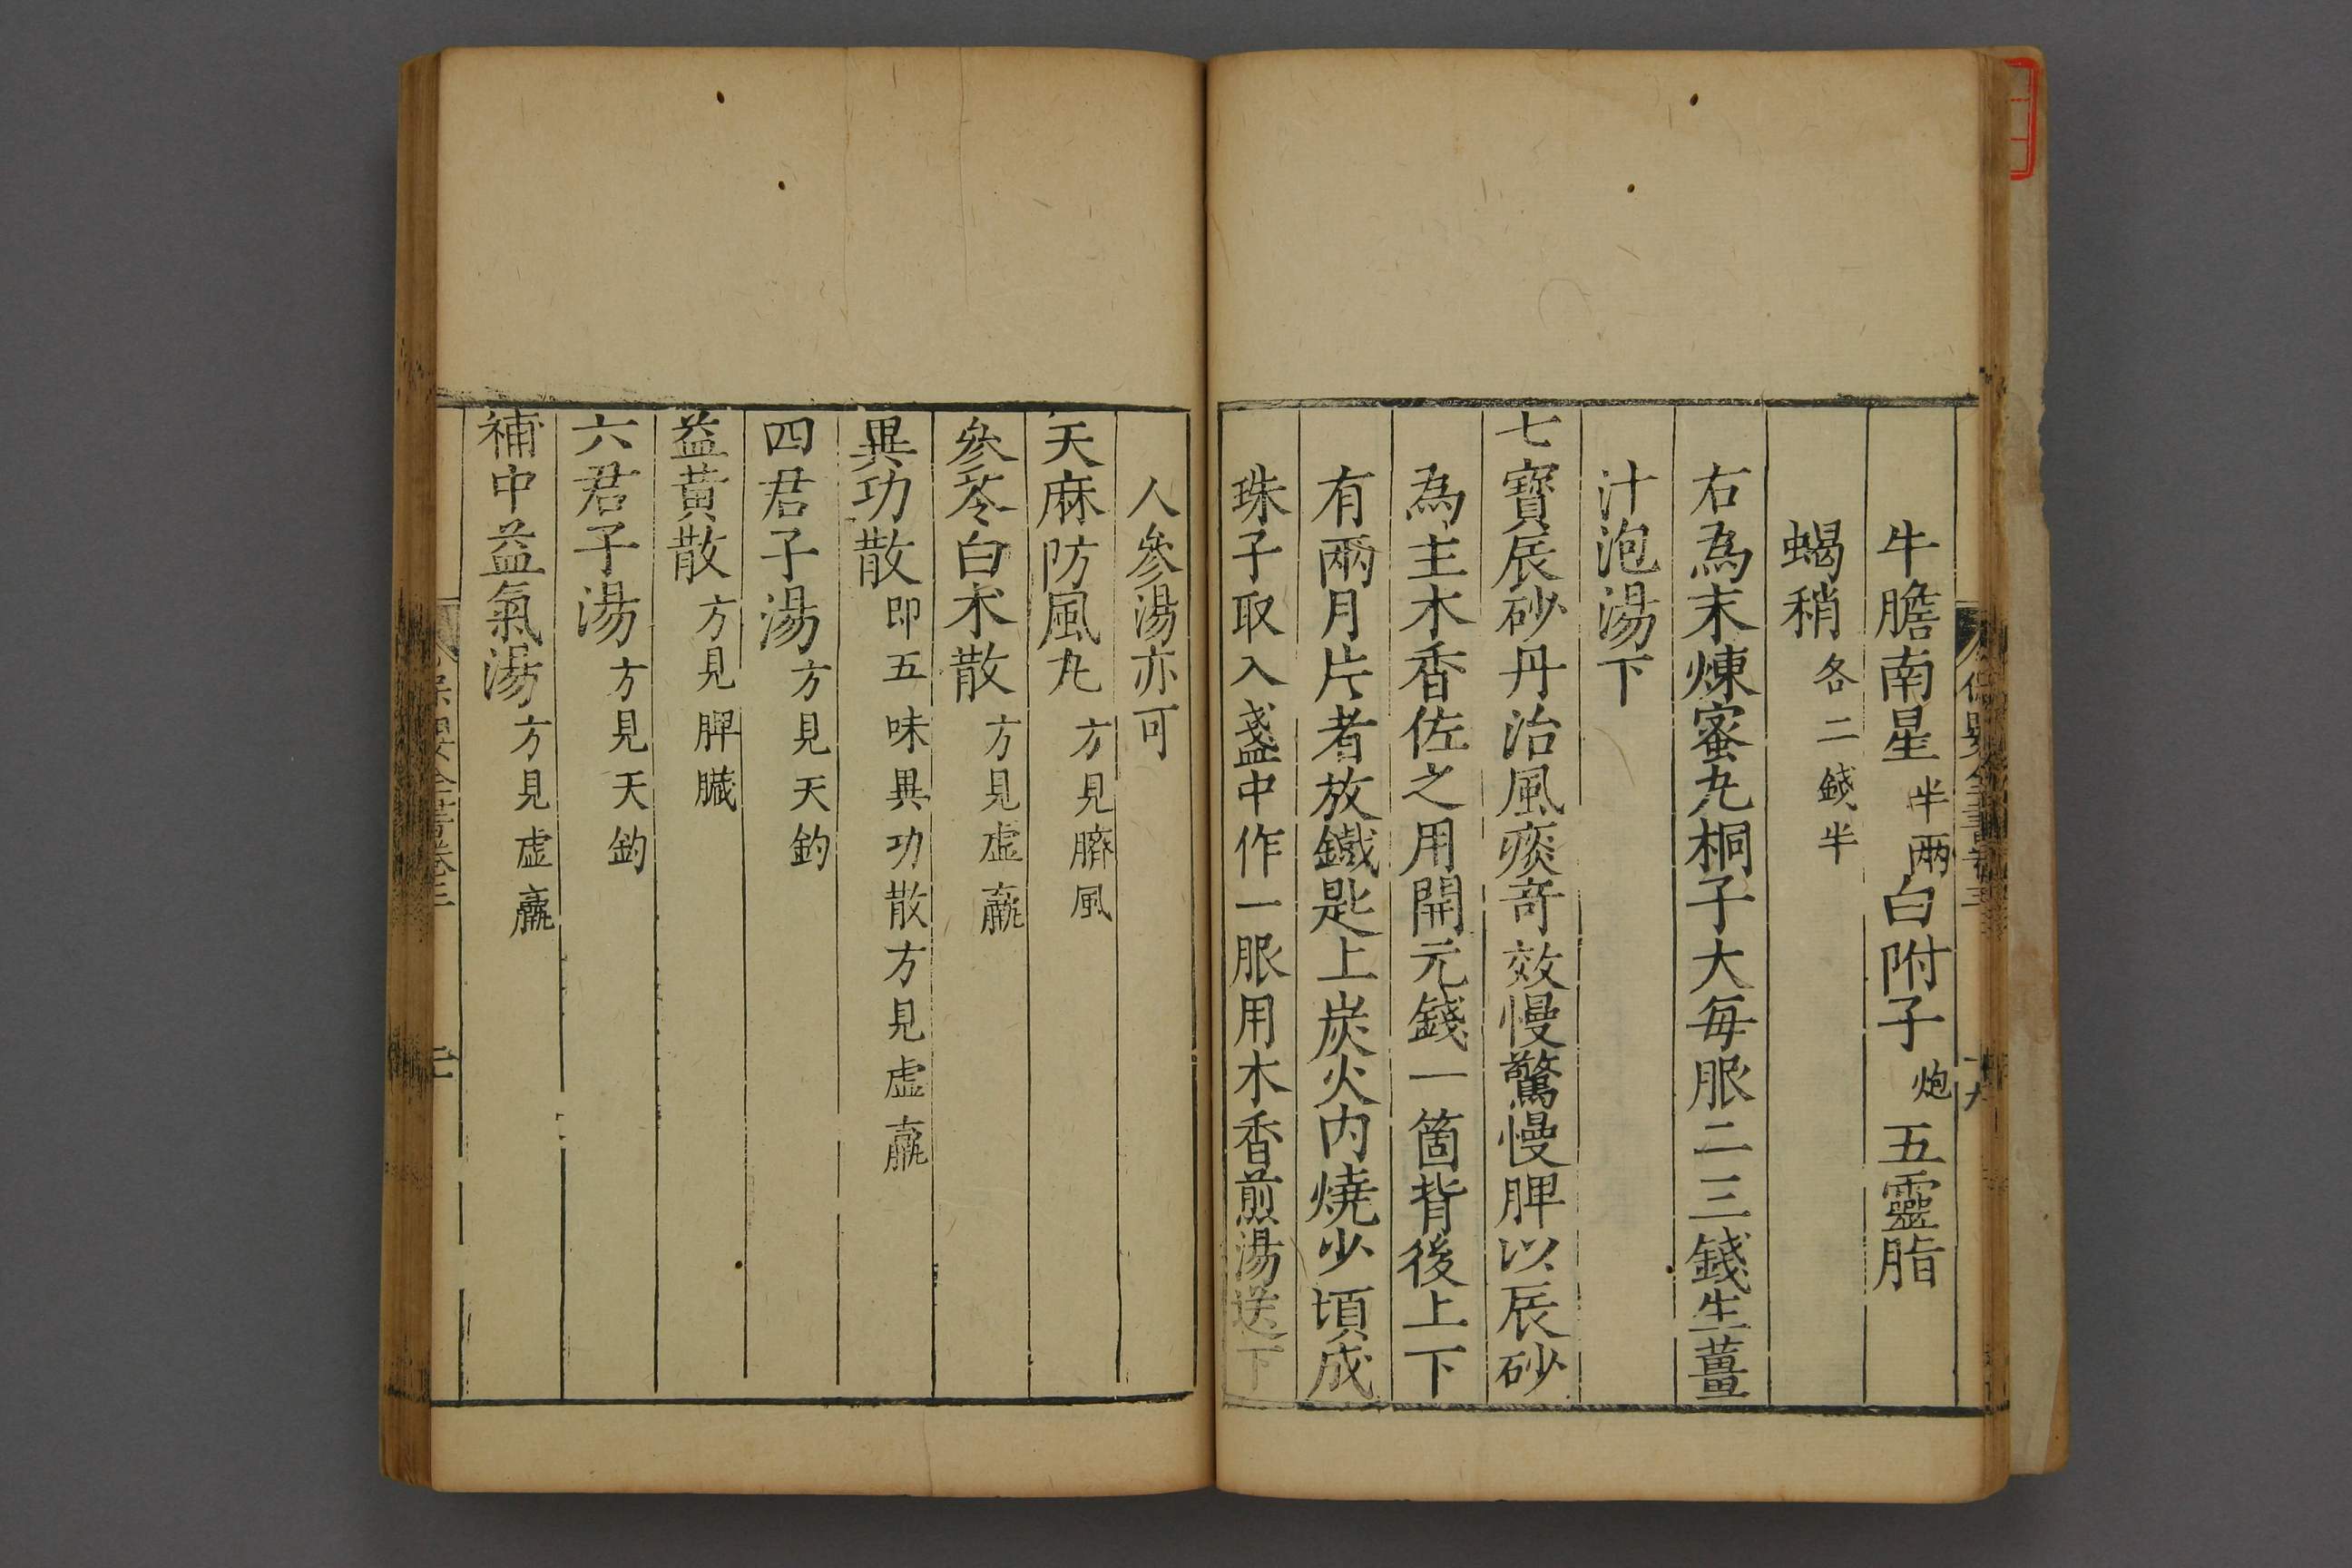 牛膽南星半兩白附子炮五靈脂
蝎稍各二錢半
右為末煉蜜丸桐子大每服二三錢生薑
汁泡湯下
七寶辰砂丹治風痰奇效慢驚慢脾以辰砂
為主木香佐之用開元錢一箇背後上下
有兩月片者放鐵匙上炭火內燒少頃成
珠子取入盞中作一服用木香煎湯送下
人參湯亦可
天麻防風丸方見臍風
參苓白朮散方見虛羸
異功散即五味異功散方見虛羸
四君子湯方見天釣
益黃散方見脾臟
六君子湯方見天釣
補中益氣湯方見虛羸